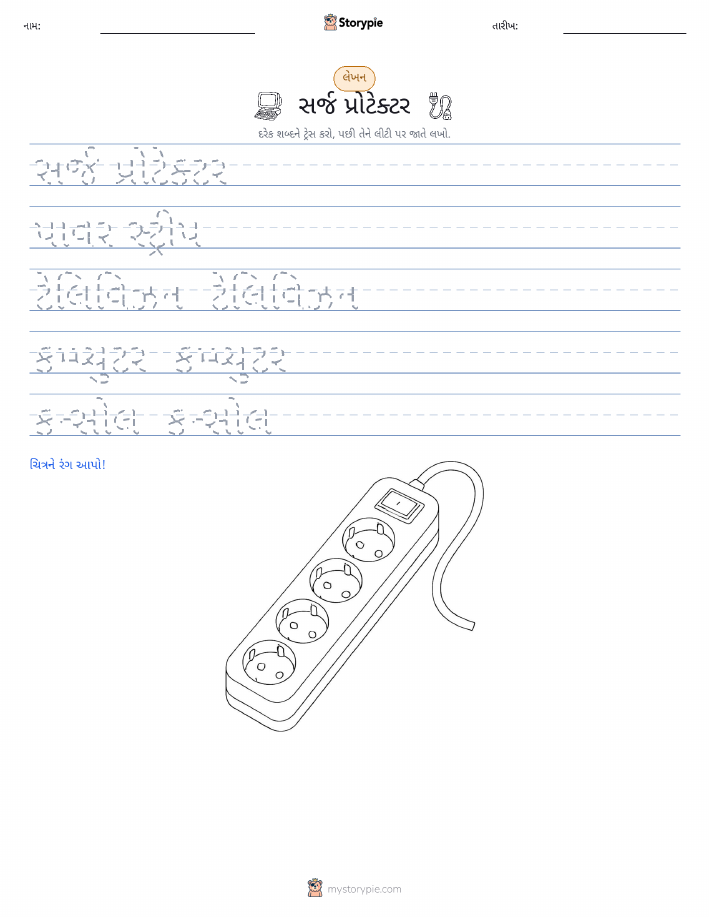 નામ:
Storypie
તારીખ:
લેખન
સર્જ પ્રોટેક્ટર
દરેક શબ્દને ટ્રેસ કરો, પછી તેને લીટી પર જાતે લખો.
સર્જ પ્રોટેક્ટર
પાવર સ્ટ્રીપ
ટેલિવિઝન ટેલિવિઝન
કમ્પ્યુટર કમ્પ્યુટર
કન્સોલ કન્સોલ
ચિત્રને રંગ આપો!
mystorypie.com